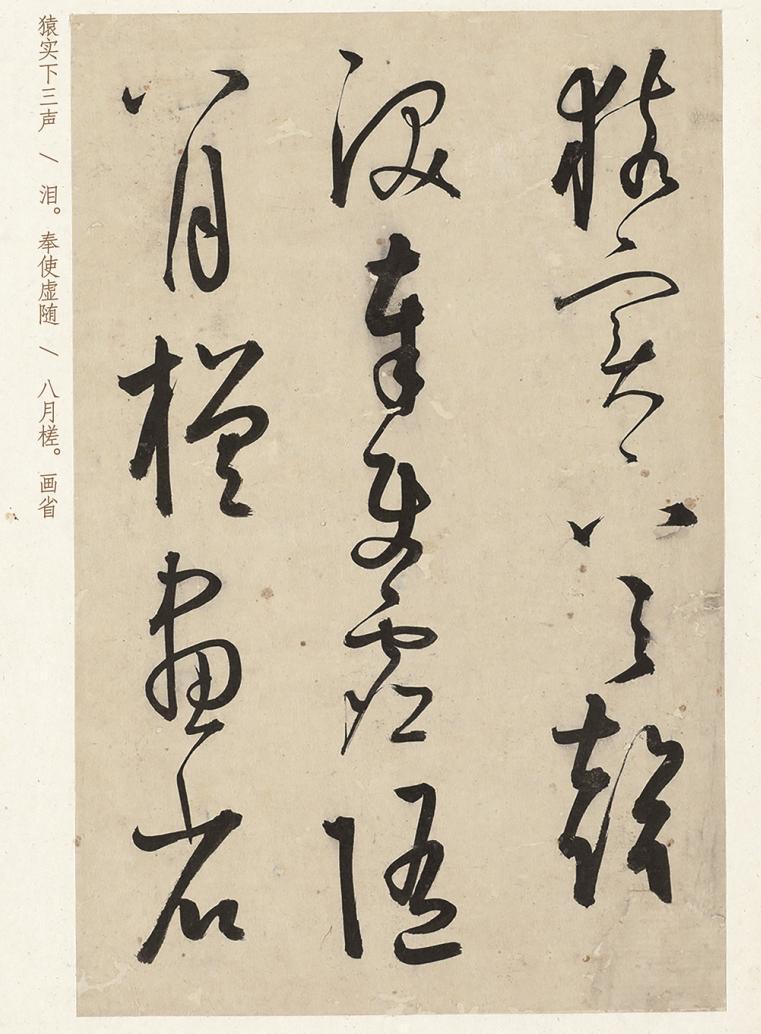 猿實下三聲
淚奉使虛隨
八月槎畫省
猿实下三声 \ 泪。奉使虚随 \ 八月槎。画省